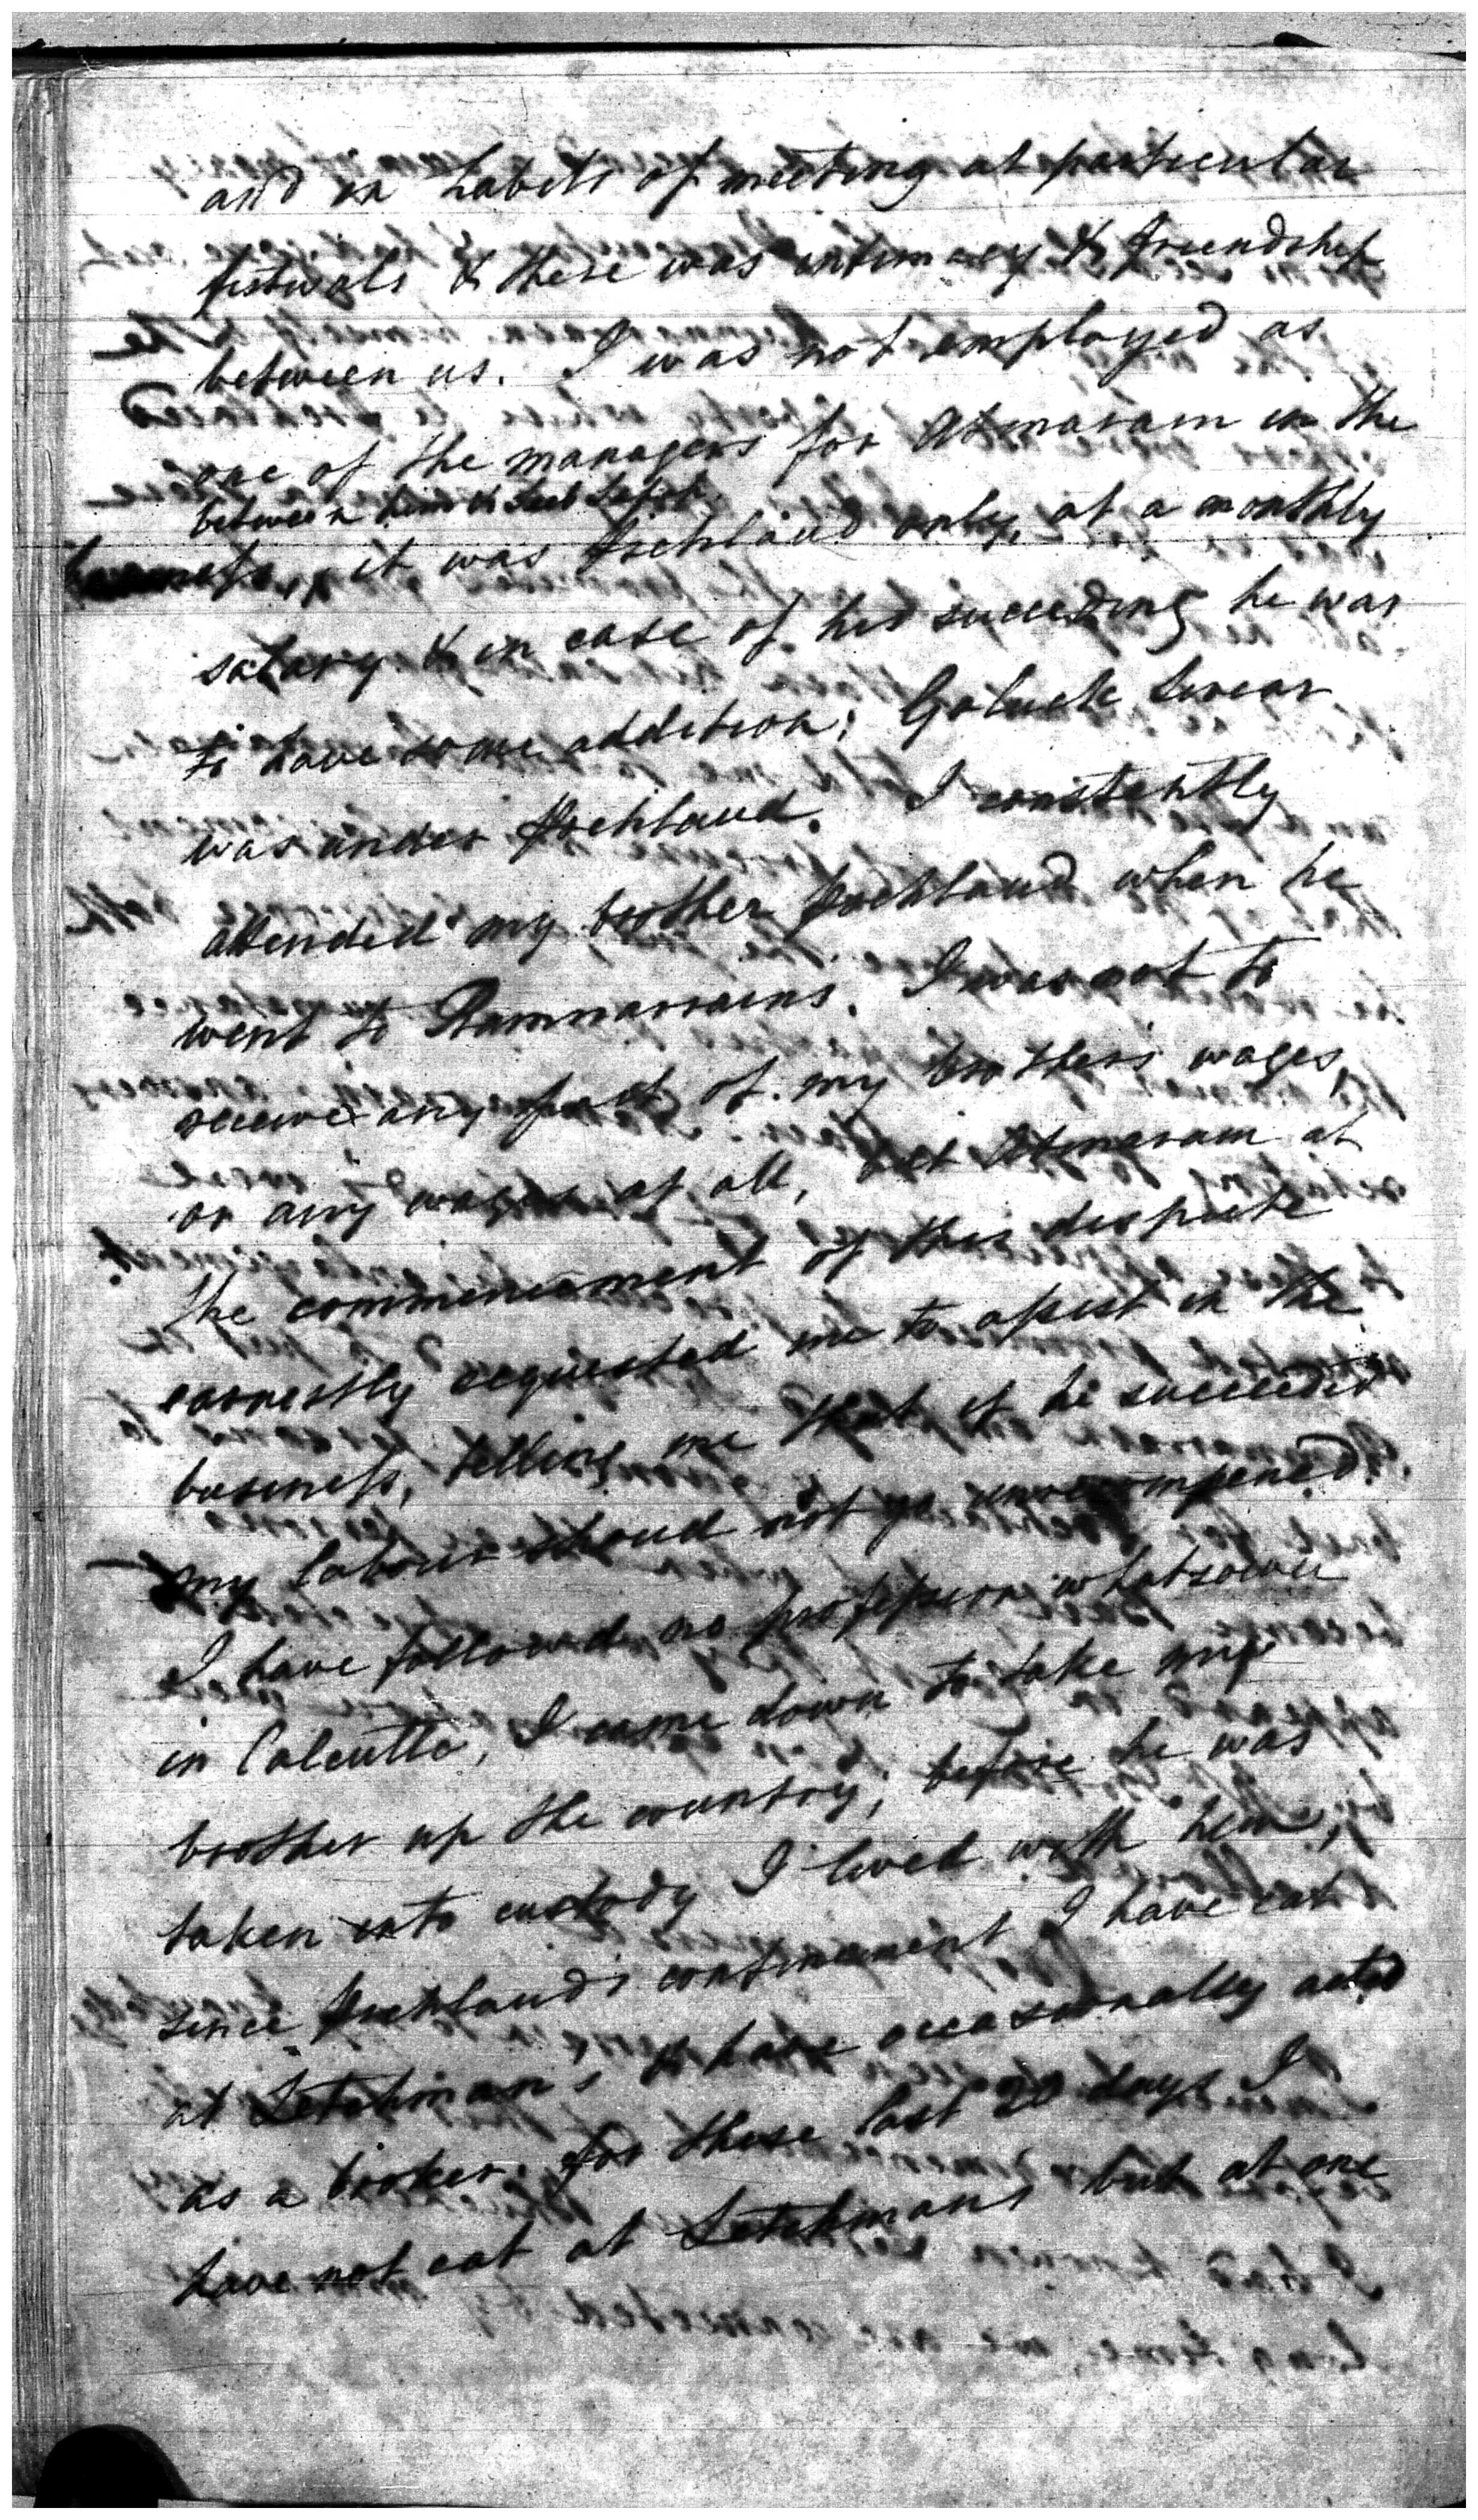 and in habits of meeting at particular
festivals & there was intimacy & friendship
between us. I was not employed as
one of the managers for Atmaram in the
between him &
business, it was only, at a monthly
salary & in case of his succeeding he was
to have some addition; Goluck
was under . I constantly
attended my brother when he
went to Ramnarrains. I was not to
receive any part of my brother's wages,
or any wages at all, but Atmaram at
the commencement of this dispute
earnestly requested me to assist in the
business, telling me that if he succeeded
my labour shoud not go
I have followed no profession whatsoever
in Calcutta, I came down to take my
brother up the country; before he was
taken into custody I lived with him,
since confinement I have eat
at Letchman's & have occasionally acted
as a broker. for these last 20 days I
have not eat at Letchmans but at one